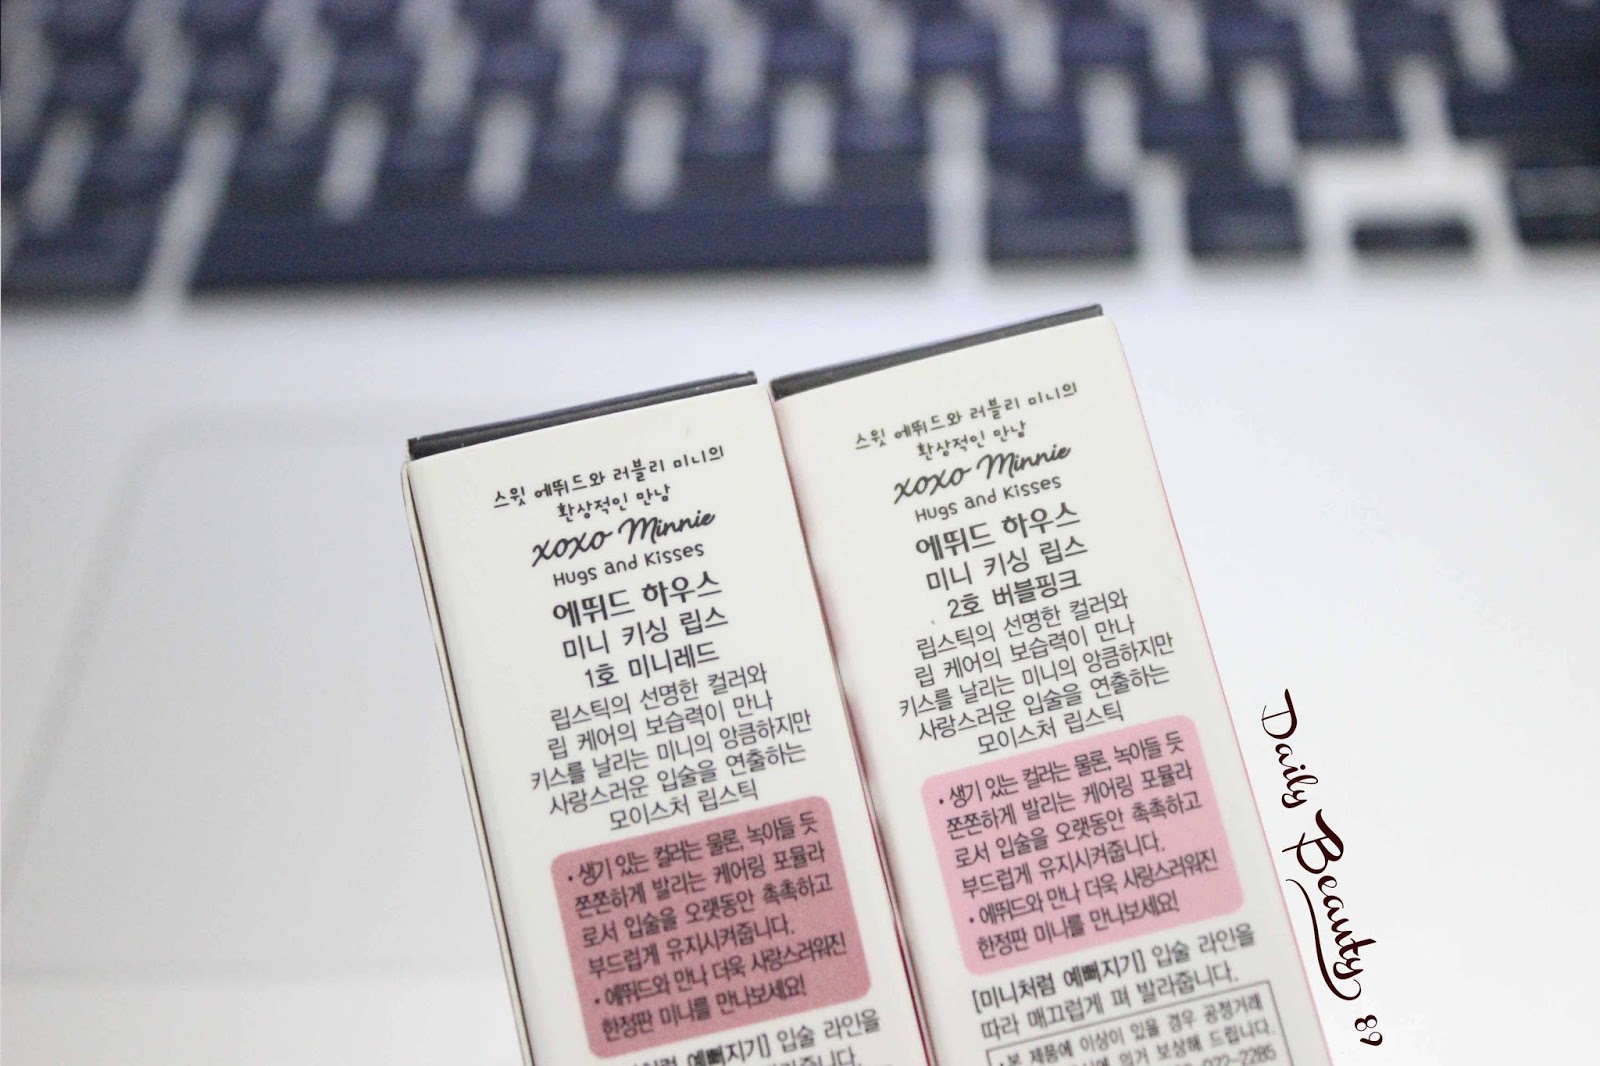 스윗 에뛰드와 러블리 미니의
환상적인 만남
xoxo Minnie
Hugs and Kisses
에뛰드 하우스
미니 키싱 립스
1호 미니레드
립스틱의 선명한 컬러와
립 케어의 보습력이 만나
키스를 날리는 미니의 앙큼하지만
사랑스러운 입술을 연출하는
모이스처 립스틱
• 생기 있는 컬러는 물론, 녹아들 듯
쫀쫀하게 발리는 케어링 포뮬라
로서 입술을 오랫동안 촉촉하고
부드럽게 유지시켜줍니다.
• 에뛰드와 만나 더욱 사랑스러워진
한정판 미니를 만나보세요!
예뻐지기] 입술 라인을
스윗 에뛰드와 러블리 미니의
환상적인 만남
xoxo Minnie
Hugs and Kisses
에뛰드 하우스
미니 키싱 립스
2호 버블핑크
립스틱의 선명한 컬러와
립 케어의 보습력이 만나
키스를 날리는 미니의 앙큼하지만
사랑스러운 입술을 연출하는
모이스처 립스틱
• 생기 있는 컬러는 물론, 녹아들 듯
쫀쫀하게 발리는 케어링 포뮬라
로서 입술을 오랫동안 촉촉하고
부드럽게 유지시켜줍니다.
• 에뛰드와 만나 더욱 사랑스러워진
한정판 미니를 만나보세요!
[미니처럼 예뻐지기] 입술 라인을
따라 매끄럽게 펴 발라줍니다.
• 본 제품에 이상이 있을 경우 공정거래
의거 보상해 드립니다.
022-2285
Daily Beauty 89